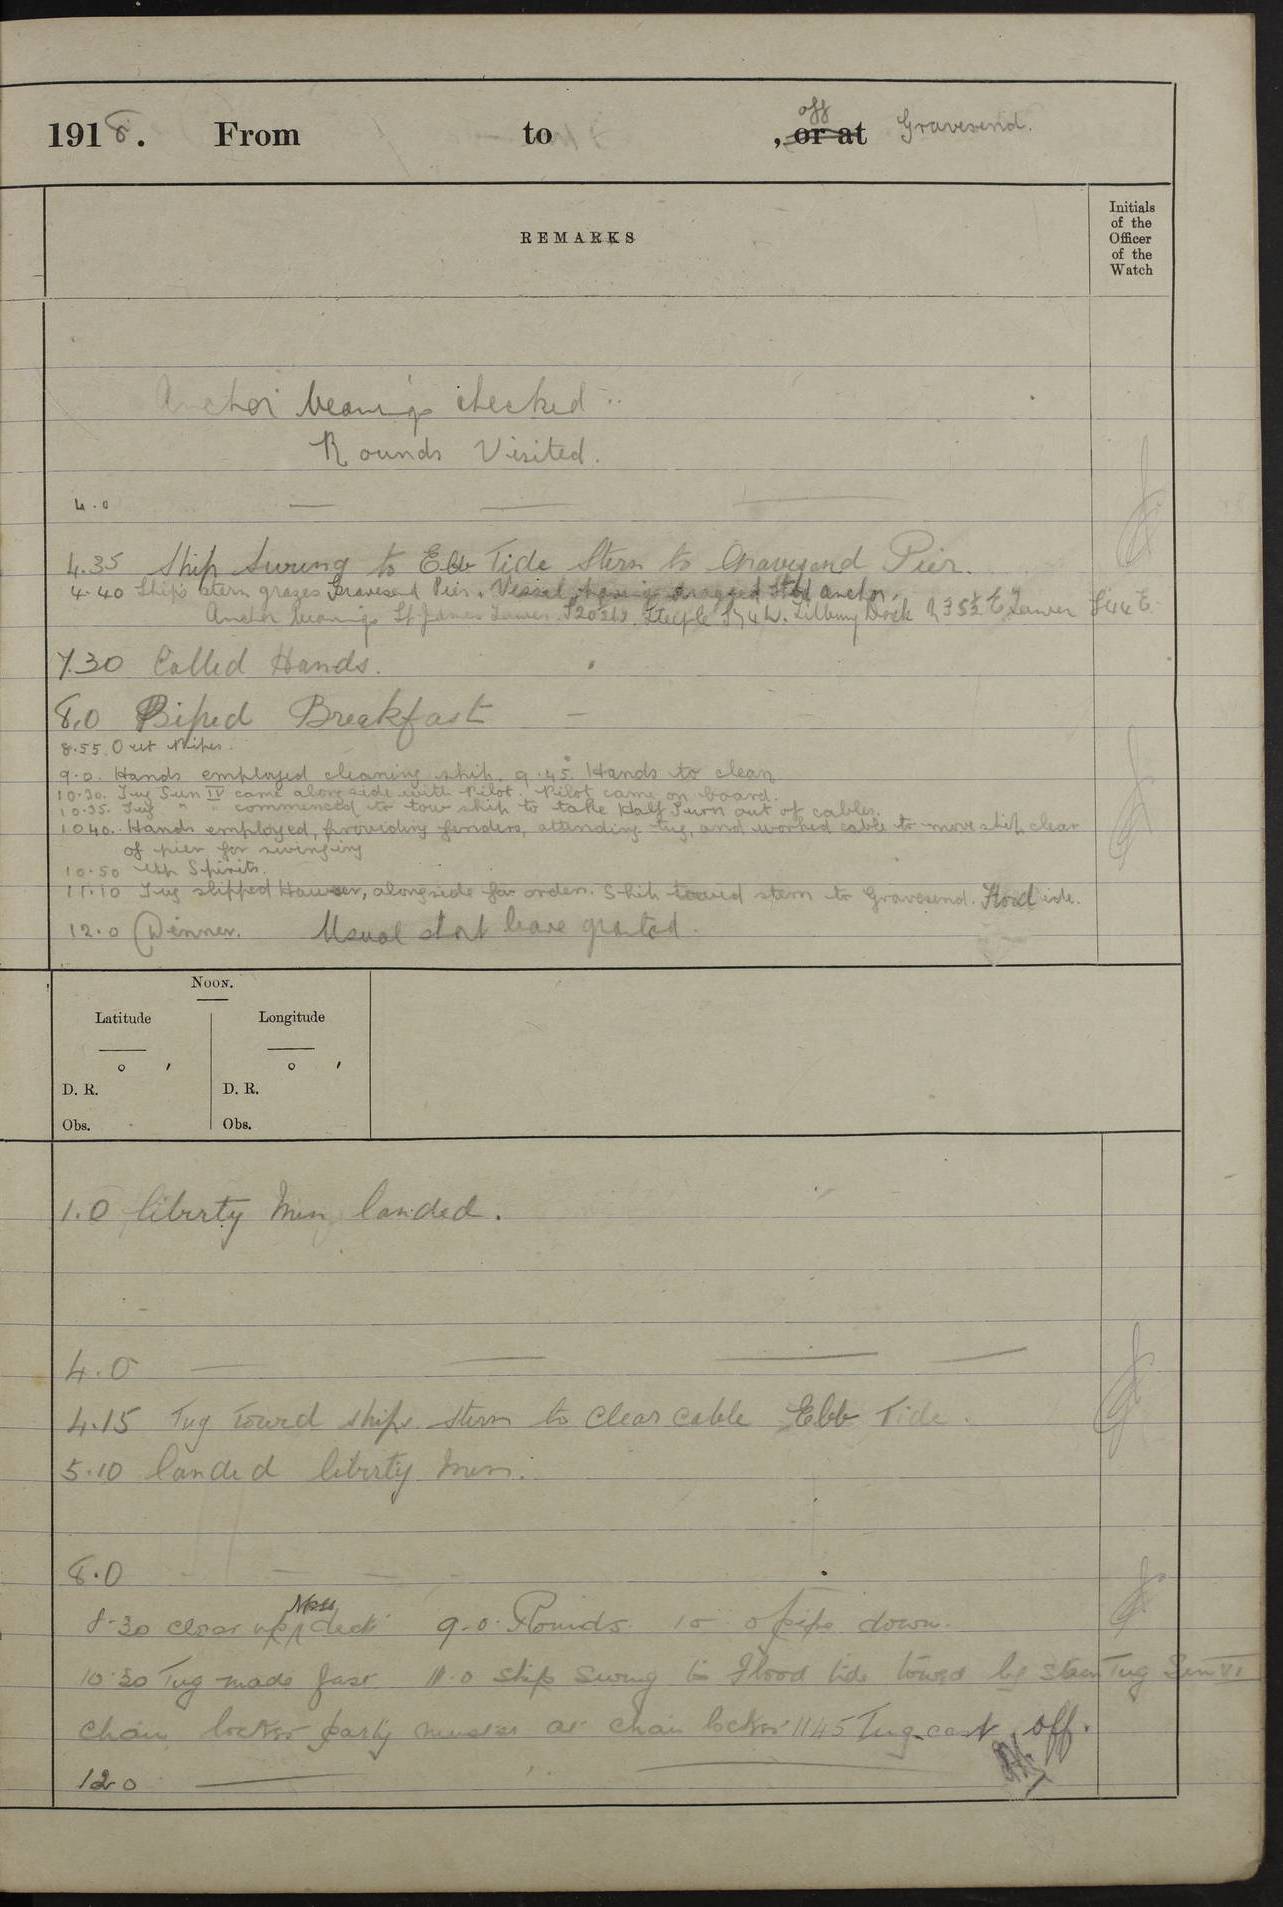 1918. From to , or at off Gravesend.
REMARKS
Initials
of the
Officer
of the
Watch
Anchor bearings checked
Rounds Visited.
4.0
4.35 Ship swung to Ebb Tide Stern to Gravesend Pier.
4.40 Ship's stern grazes Gravesend Pier. Vessel having dragged Stbd anchor.
Anchor bearings St James Tower Steeple S 74 W. Tilbury Dock Tower S 44 E.
7.30 Called Hands.
8.0 Piped Breakfast
8.55. Out Pipes.
9.0. Hands employed cleaning ship. 9.45. Hands to clean
10.30. Tug Sun IV came alongside with Pilot. Pilot came on board.
10.35. Tug " " commenced to tow ship to take Half Turn out of cables.
10.40. Hands employed, providing fenders, attending tug, and worked cable to move ship clear
of pier for swinging
10.50 Up Spirits.
11.10 Tug slipped Hawser, alongside for orders. Ship towed stern to Gravesend. Flood tide.
12.0 Dinner. Usual short leave granted.
Noon.
Latitude Longitude
° ′ ° ′
D. R. D. R.
Obs. Obs.
1.0 liberty Men landed.
4.0
4.15 Tug towed ships stern to clear cable Ebb Tide.
5.10 landed liberty Men.
8.0
8.30 clear up Mess deck 9.0 Rounds 10 0 pipe down.
10.30 Tug made fast 11.0 ship swung to Flood tide towed by steam Tug Sun VI
chain locker party muster at chain locker 1145 Tug cast off.
12 0